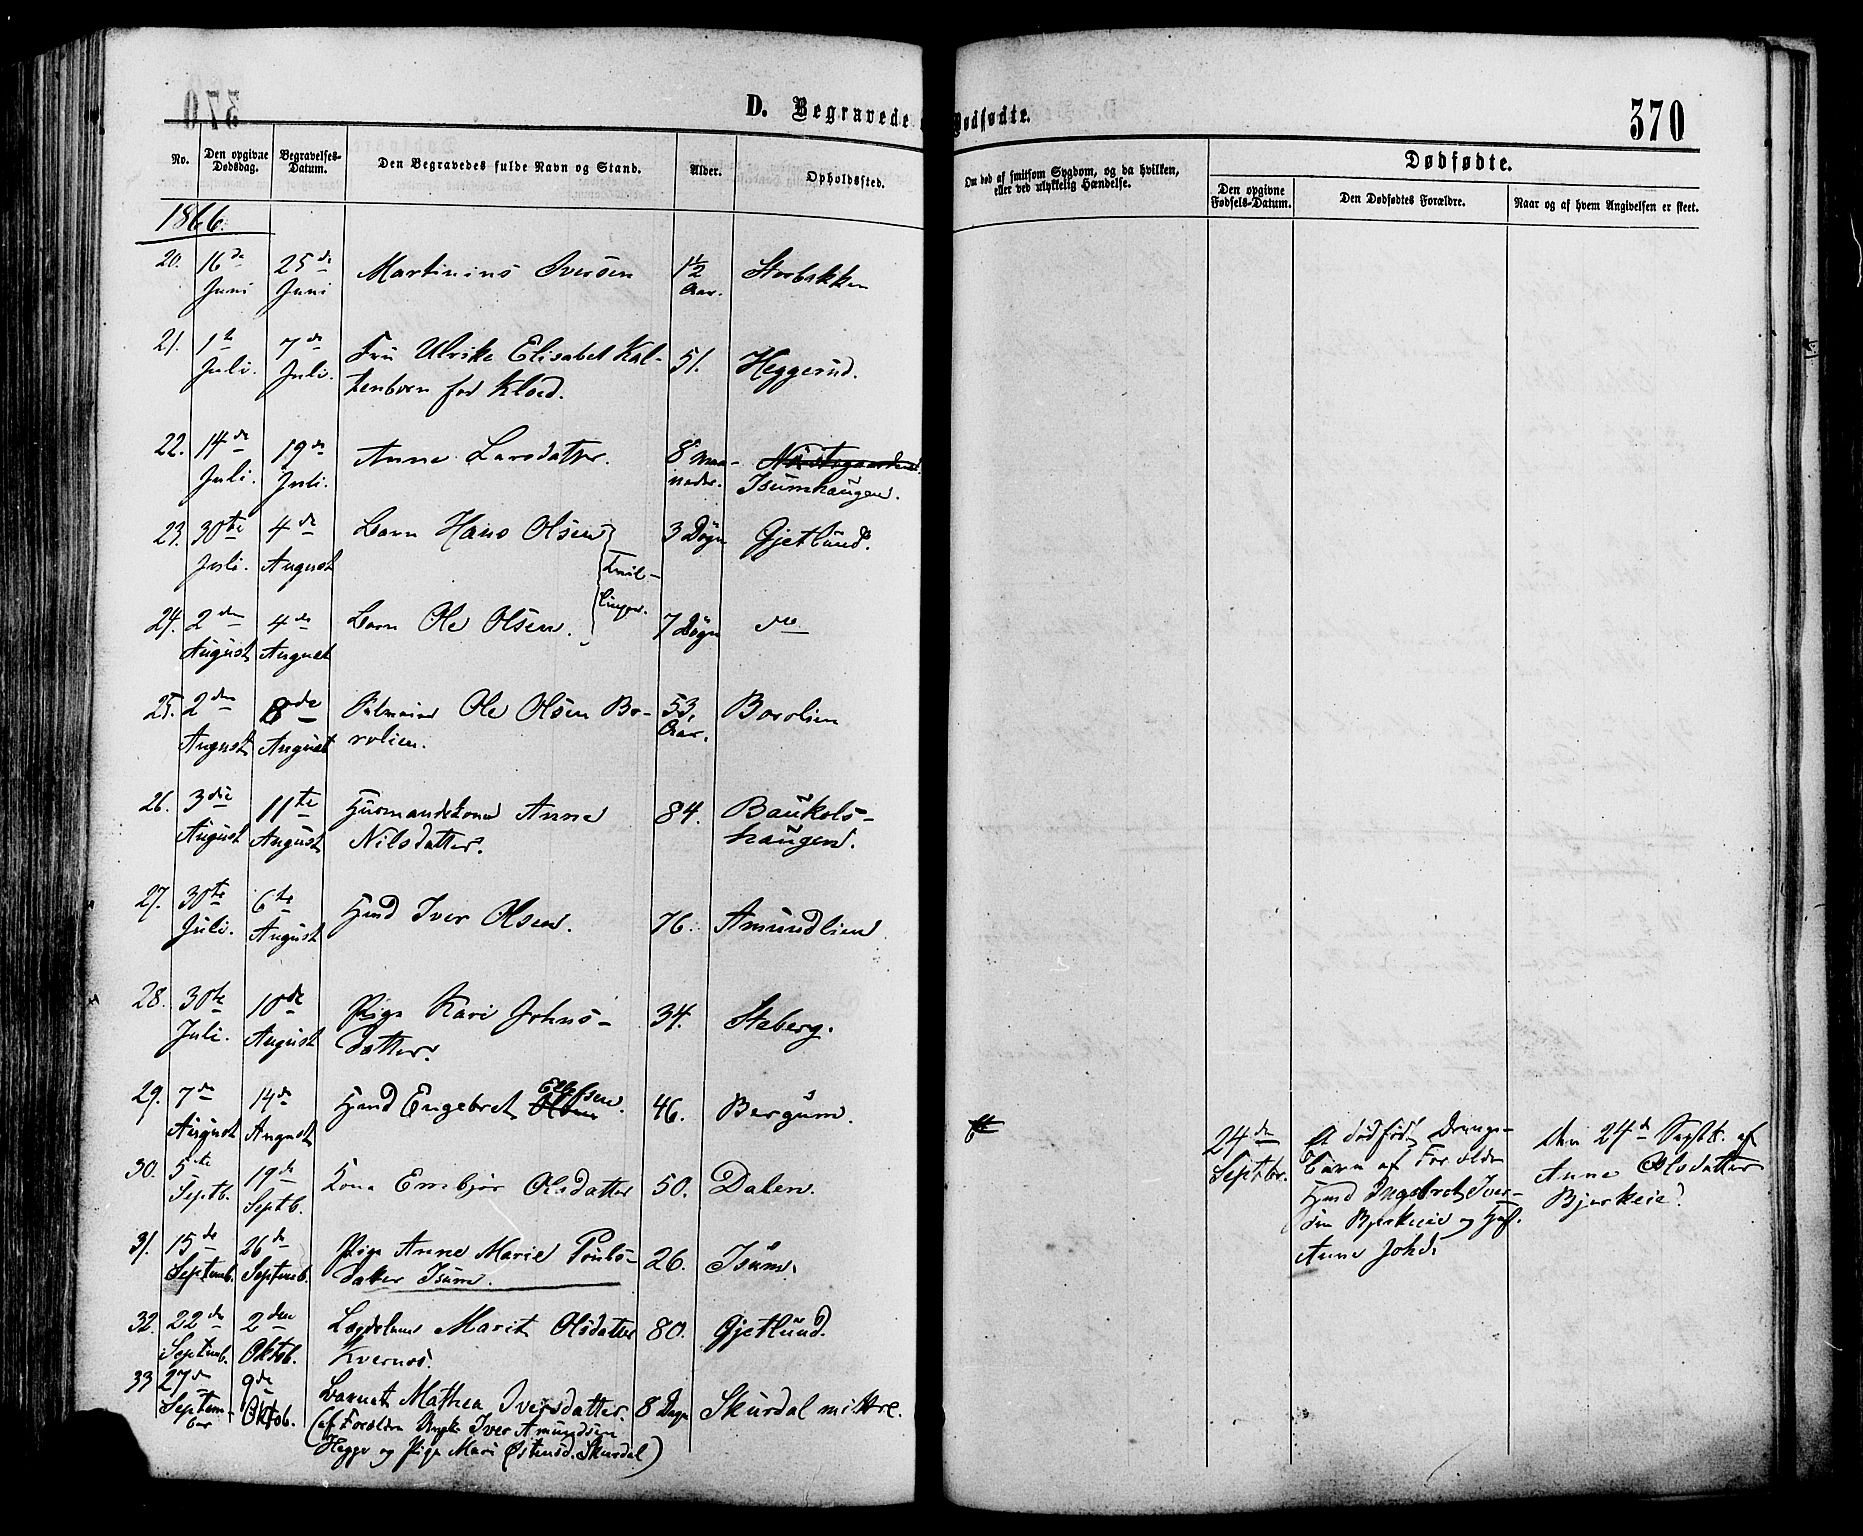 D. Begravede Dødfødte.
370
No.
Den opgivne Dødsdag.
Begravelses-Datum.
Den Begravedes fulde Navn og Stand.
Alder.
Opholdssted.
Om død af smitsom Sygdom, og da hvilken,
eller ved ulykkelig Hændelse.
Dødfødte.
Den opgivne Fødsels-Datum.
Den Dødfødtes Forældre.
Naar og af hvem Angivelsen er skeet.
1866.
20. 16de 25de Martinius Iversen 1½ Storbakken
Juni Juni Aar.
21. 1te 7de Fru Ulrike Elisabet Kal- 51. Heggerud.
Juli. Juli. tenborn fød Kloed.
22. 14de 19de Anne Larsdatter. 8 Maa-
Juli. Juli. neder. Isumhaugen.
23. 30te 4de Barn Hans Olsen 3 Døgn Gjetlund.
Juli. August Tvil-
linger.
24. 2den 4de Barn Ole Olsen. 7 Døgn do
August August
25. 2den 8de Ole Olsen Bo- 53. Borolien
August August rolien. Aar.
26. 3die 11te Husmandskone Anne 84. Baukols-
August August Nilsdatter. haugen.
27. 30te 6te Hmd Iver Olsen. 76. Amundlien
Juli. August
28. 30te 10de Pige Kari Johns- 34. Staberg.
Juli. August datter.
29. 7de 14de Hmd Engebret 46. Bergum.
August August
30. 5te 19de Kona Embjør Olsdatter 50. Dalen.
Septb. Septb.
31. 15de 26de Pige Anne Marie Pouls- 26. Isum.
Septemb. Septemb. datter Isum.
32. 22de 2den Lægdslem Marit Olsdatter 80. Gjetlund.
Septemb. Oktob. Kvernos.
33 27de 9de Barnet Mathea Iversdatter. 8 Dage Skurdal mittre.
Septem- Oktob. (af Forældre Ungk. Iver Amundsen
ber Hegge og Pige Mari Østensd. Skurdal)
24de Et dødfødt Drenge- Den 24de Septb. af
Septbr. barn af Forældre Anne Olsdatter
Hmd Ingebret Iver- Bjerkeie.
sen Bjerkeie og Hust.
Anne Johd.